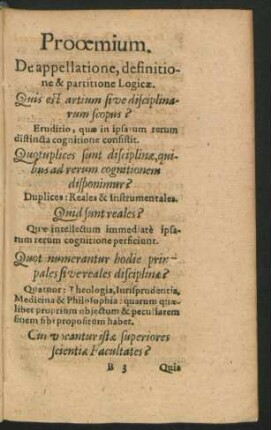 Prooemium.
De appellatione, definitio-
ne & partitione Logicæ.
Quis est artium sive disciplina-
rum scopus?
Eruditio, quæ in ipsarum rerum
distincta cognitione consistit.
Quotuplices sunt disciplinæ, qui-
bus ad rerum cognitionem
disponimur?
Duplices: Reales & Instrumentales.
Quid sunt reales?
Quæ intellectum immediatè ipsa-
rum rerum cognitione perficiunt.
Quot numerantur hodie prin-
pales sive reales disciplinæ?
Quatuor: Theologia, Iurisprudentia,
Medicina & Philosophia: quarum quæ-
libet proprium objectum & peculiarem
finem sibi propositum habet.
Cur vocantur istæ superiores
scientiæ Facultates?
B 3 Quia